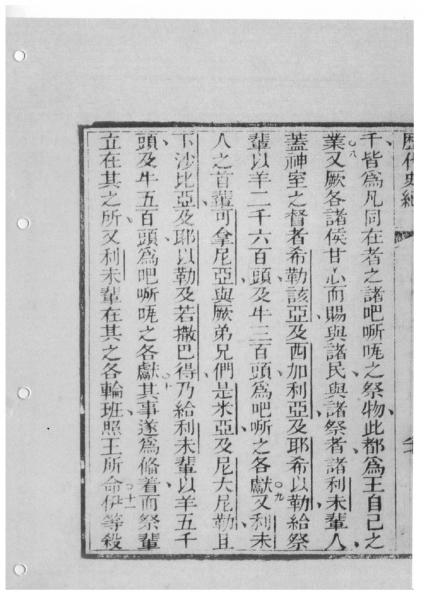 歷代史紀
千皆爲凡同在者之諸吧𠵽咓之祭物此都爲王自己之
業○八又厥各諸侯甘心而賜與諸民與諸祭者諸利未輩人
蓋神室之督者希勒該亞及西加利亞及耶希以勒給祭
輩以羊二千六百頭及牛三百頭爲吧𠵽之各獻○九又利未
人之首輩可拿尼亞與厥弟兄們是米亞及尼大尼勒且
下沙比亞及耶以勒及若撒巴得乃給利未輩以羊五千
頭及牛五百頭爲吧𠵽咓之各獻○十其事遂爲修着而祭輩
立在其之所又利未輩在其之各輪班照王所命○十一伊等殺